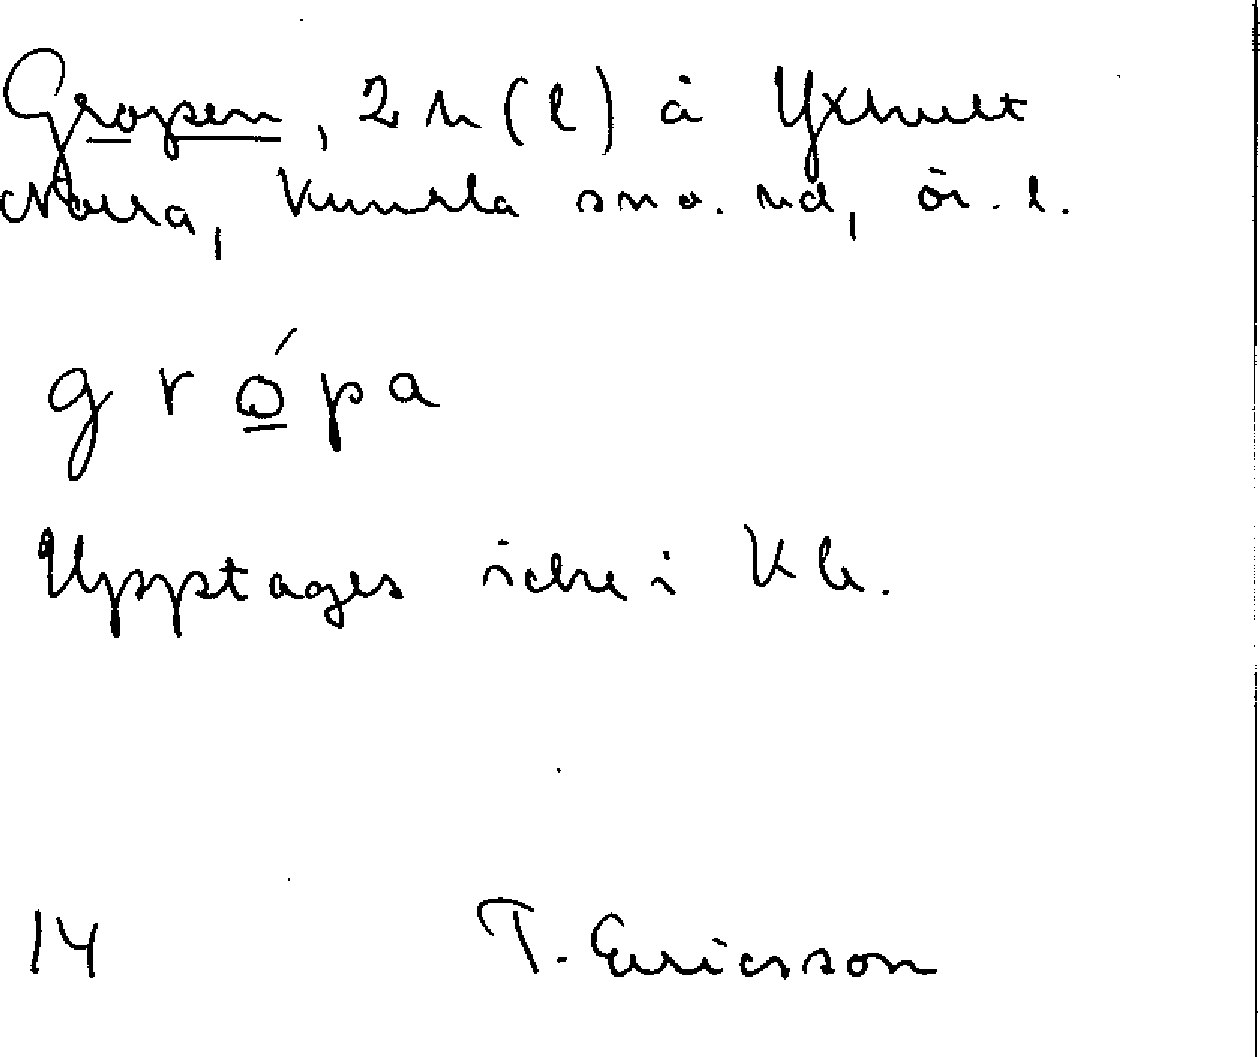 Gropen, 2 h (l) å Yxhult
Norra, Kumla sn o. hd, ör. l.
g r ó̲ p a
Upptages icke i Kb.
14 T. Ericsson